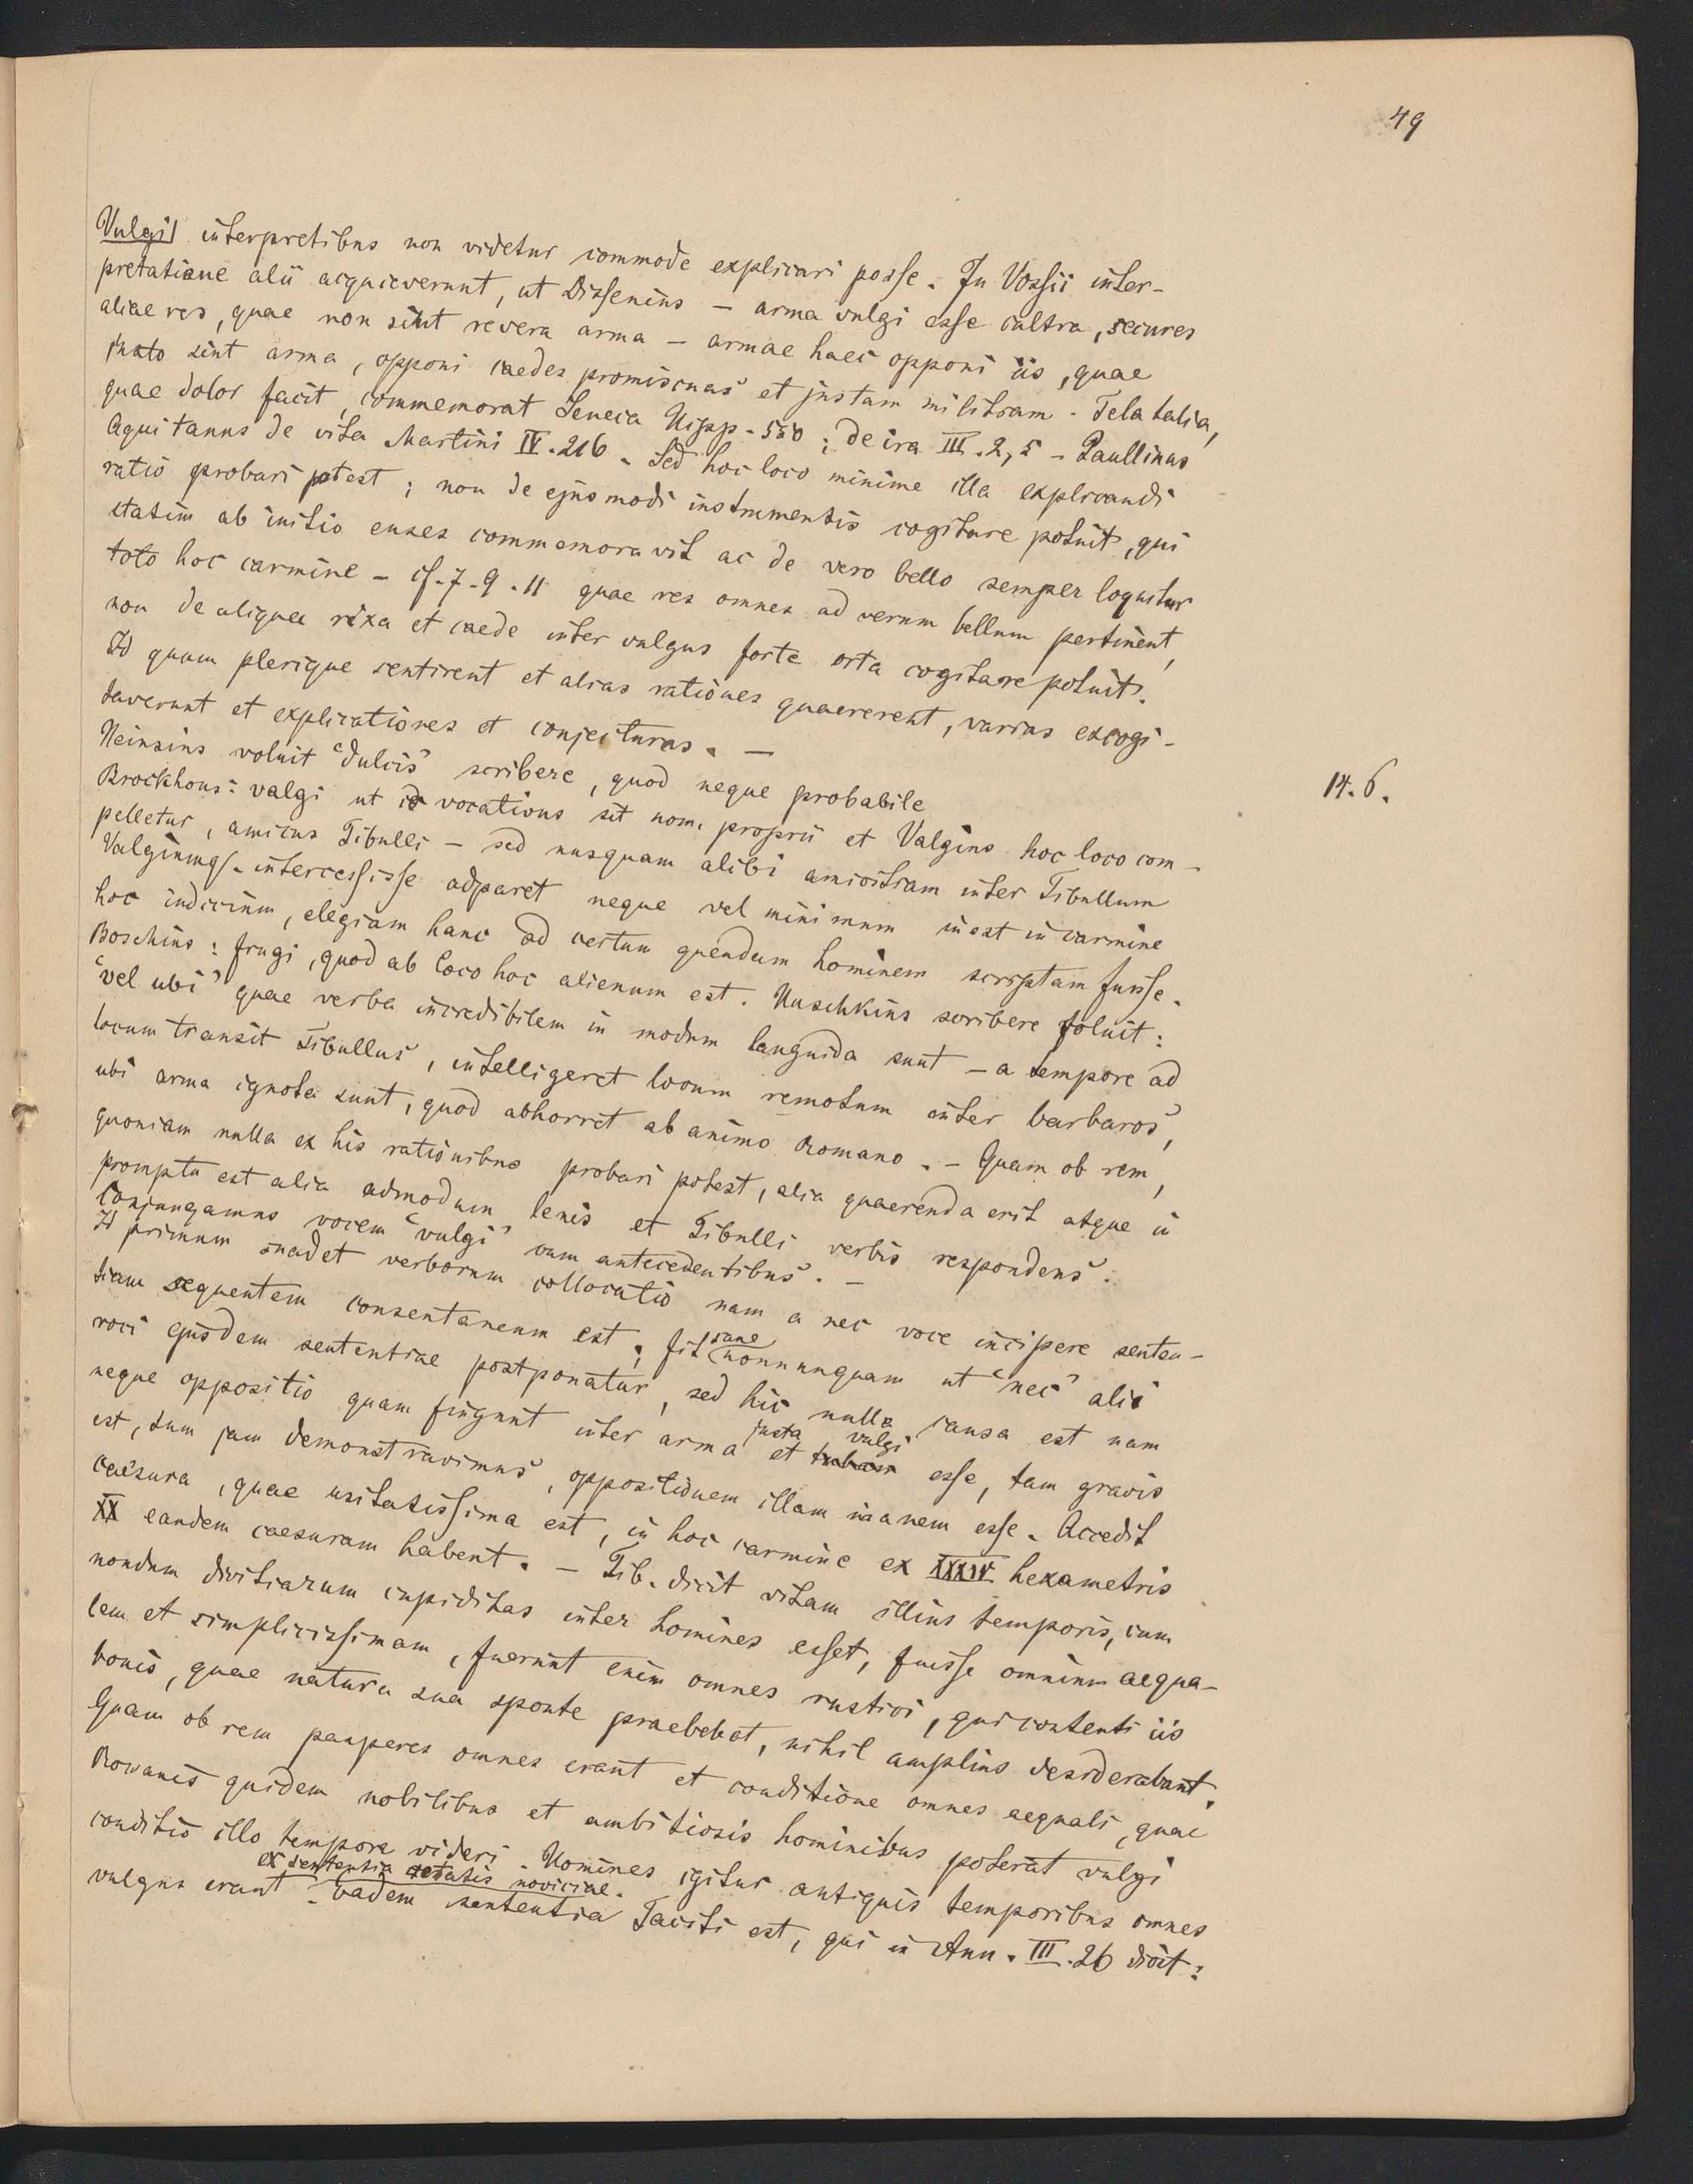 49
Vulgi] interpretibus non videtur commode explicari posse. In Vossii inter-
pretatione alii acquieverunt, ut Dissenius – arma vulgi esse cultra, secures
aliae res, quae non sint revera arma – armae haec opponi iis, quae
justo sint arma, opponi caedes promiscuas et justam militiam. Tela talia,
quae dolor facit, commemorat Seneca Hipp. 550; de ira III. 2, 5 – Paullinus
Aquitanus de vita Martini IV. 216. Sed hoc loco minime illa explicandi
ratio probari potest; non de ejusmodi instrumentis cogitare potuit, qui
statim ab initio enses commemoravit ac de vero bello semper loquitur
toto hoc carmine – cf. 7. 9. 11 quae res omnes ad verum bellum pertinent,
non de aliqua rixa et caede inter vulgus forte orta cogitare potuit.
Id quum plerique sentirent et alias rationes quaererent, varias excogi-
taverunt et explicationes et conjecturas. —
Heinsius voluit "dulcis" scribere, quod neque probabile
14. 6.
Brockhous: valgi ut id vocativus sit nom. proprii et Valgius hoc loco com-
pelletur, amicus Tibulli – sed nusquam alibi amicitiam inter Tibullum
Valgiumq. intercessisse adparet neque vel minimum inest in carmine
hoc indicium, elegiam hanc ad certum quendam hominem scriptam fuisse.
Boschius: frugi, quod ab loco hoc alienum est. Huschkius scribere voluit:
"vel ubi" quae verba incredibilem in modum languida sunt – a tempore ad
locum transit Tibullus, intelligeret locum remotum inter barbaros,
ubi arma ignota sunt, quod abhorret ab animo Romano. – Quam ob rem,
quoniam nulla ex his rationibus probari potest, alia quaerenda erit atque in
promptu est alia admodum lenis et Tibulli verbis respondens.
Conjungamus vocem "vulgi" cum antecedentibus. –
Id primum suadet verborum collocatio nam a nec voce incipere senten-
tiam sequentem consentaneum est; fit sane nonnunquam ut "nec" alii
voci ejusdem sententiae postponatur, sed hic nulla causa est nam
neque oppositio quam fingunt inter arma justa et vulgi esse, tam gravis
est, tum jam demonstravimus, oppositionem illam inanem esse. Accedit
caesura, quae usitatissima est, in hoc carmine ex XXXIV hexametris
XX eandem caesuram habent. – Tib. dicit vitam illius temporis, cum
nondum divitiarum cupiditas inter homines esset, fuisse omnium aequa-
lem et simplicissimam, fuerunt enim omnes rustici, qui contenti iis
bonis, quae natura sua sponte praebebat, nihil amplius desiderabant.
Quam ob rem pauperes omnes erant et conditione omnes aequali, quae
Romanis quidem nobilibus et ambitiosis hominibus poterat vulgi
conditio illo tempore videri. Homines igitur antiquis temporibus omnes
vulgus erant ex sententia aetatis noviciae. Eadem sententia Taciti est, qui in Ann. III. 26 dicit: